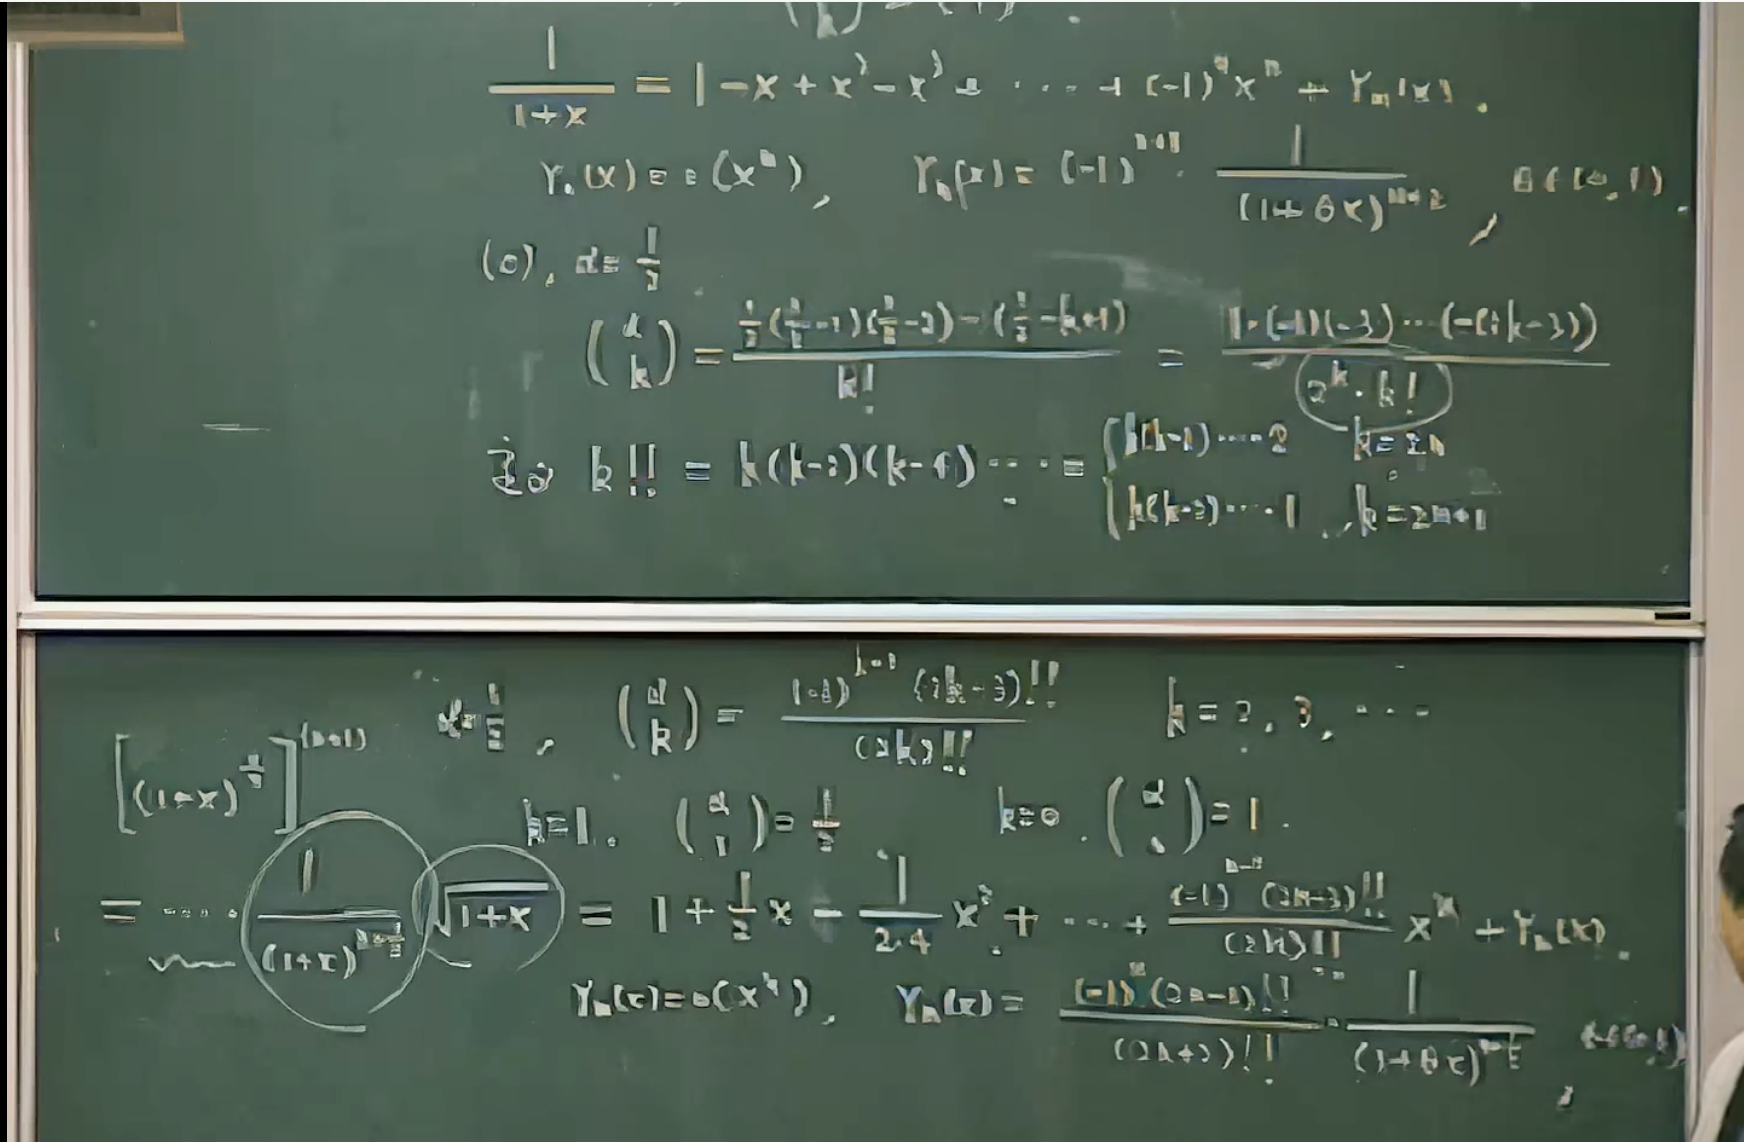 1/(1+x) = 1 - x + x² - x³ + ···· + (-1)ⁿxⁿ + rₙ(x).
rₙ(x) = o(xⁿ), rₙ(x) = (-1)ⁿ⁺¹ · 1/(1+θx)ⁿ⁺², θ∈(0,1)
α = 1/2
(α k) = 1/2(1/2-1)(1/2-2)···(1/2-k+1)/k! = 1·(-1)(-3)···(-(2k-3))/(2ᵏ·k!)
k!! = k(k-2)(k-4)···· = { k(k-2)·····2 k=2n
k(k-2)·····1, k=2n+1
α=1/2, (α k) = (-1)ᵏ⁻¹(2k-3)!!/(2k)!! k=2,3,···
[(1+x)^(1/2)]⁽ⁿ⁺¹⁾
k=1. (α 1) = 1/2 k=0. (α 0) = 1.
= ····· 1/(1+x)
√(1+x) = 1 + 1/2 x - 1/(2·4) x² + ···· + (-1)ⁿ⁻¹(2n-3)!!/(2n)!! xⁿ + rₙ(x).
rₙ(x)=o(xⁿ), rₙ(x) = (-1)ⁿ(2n-1)!!/(2n+2)!! · 1/(1+θx)